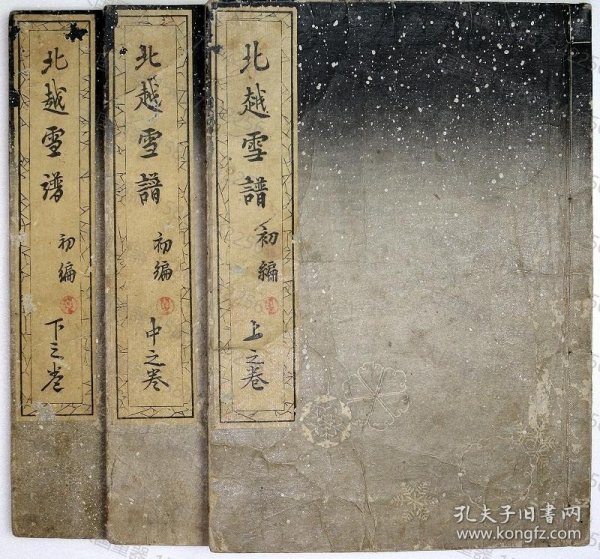 北越雪譜 初編 上之卷
北越雪譜 初編 中之卷
北越雪譜 初編 下之卷
孔夫子旧书网
www.kongfz.com